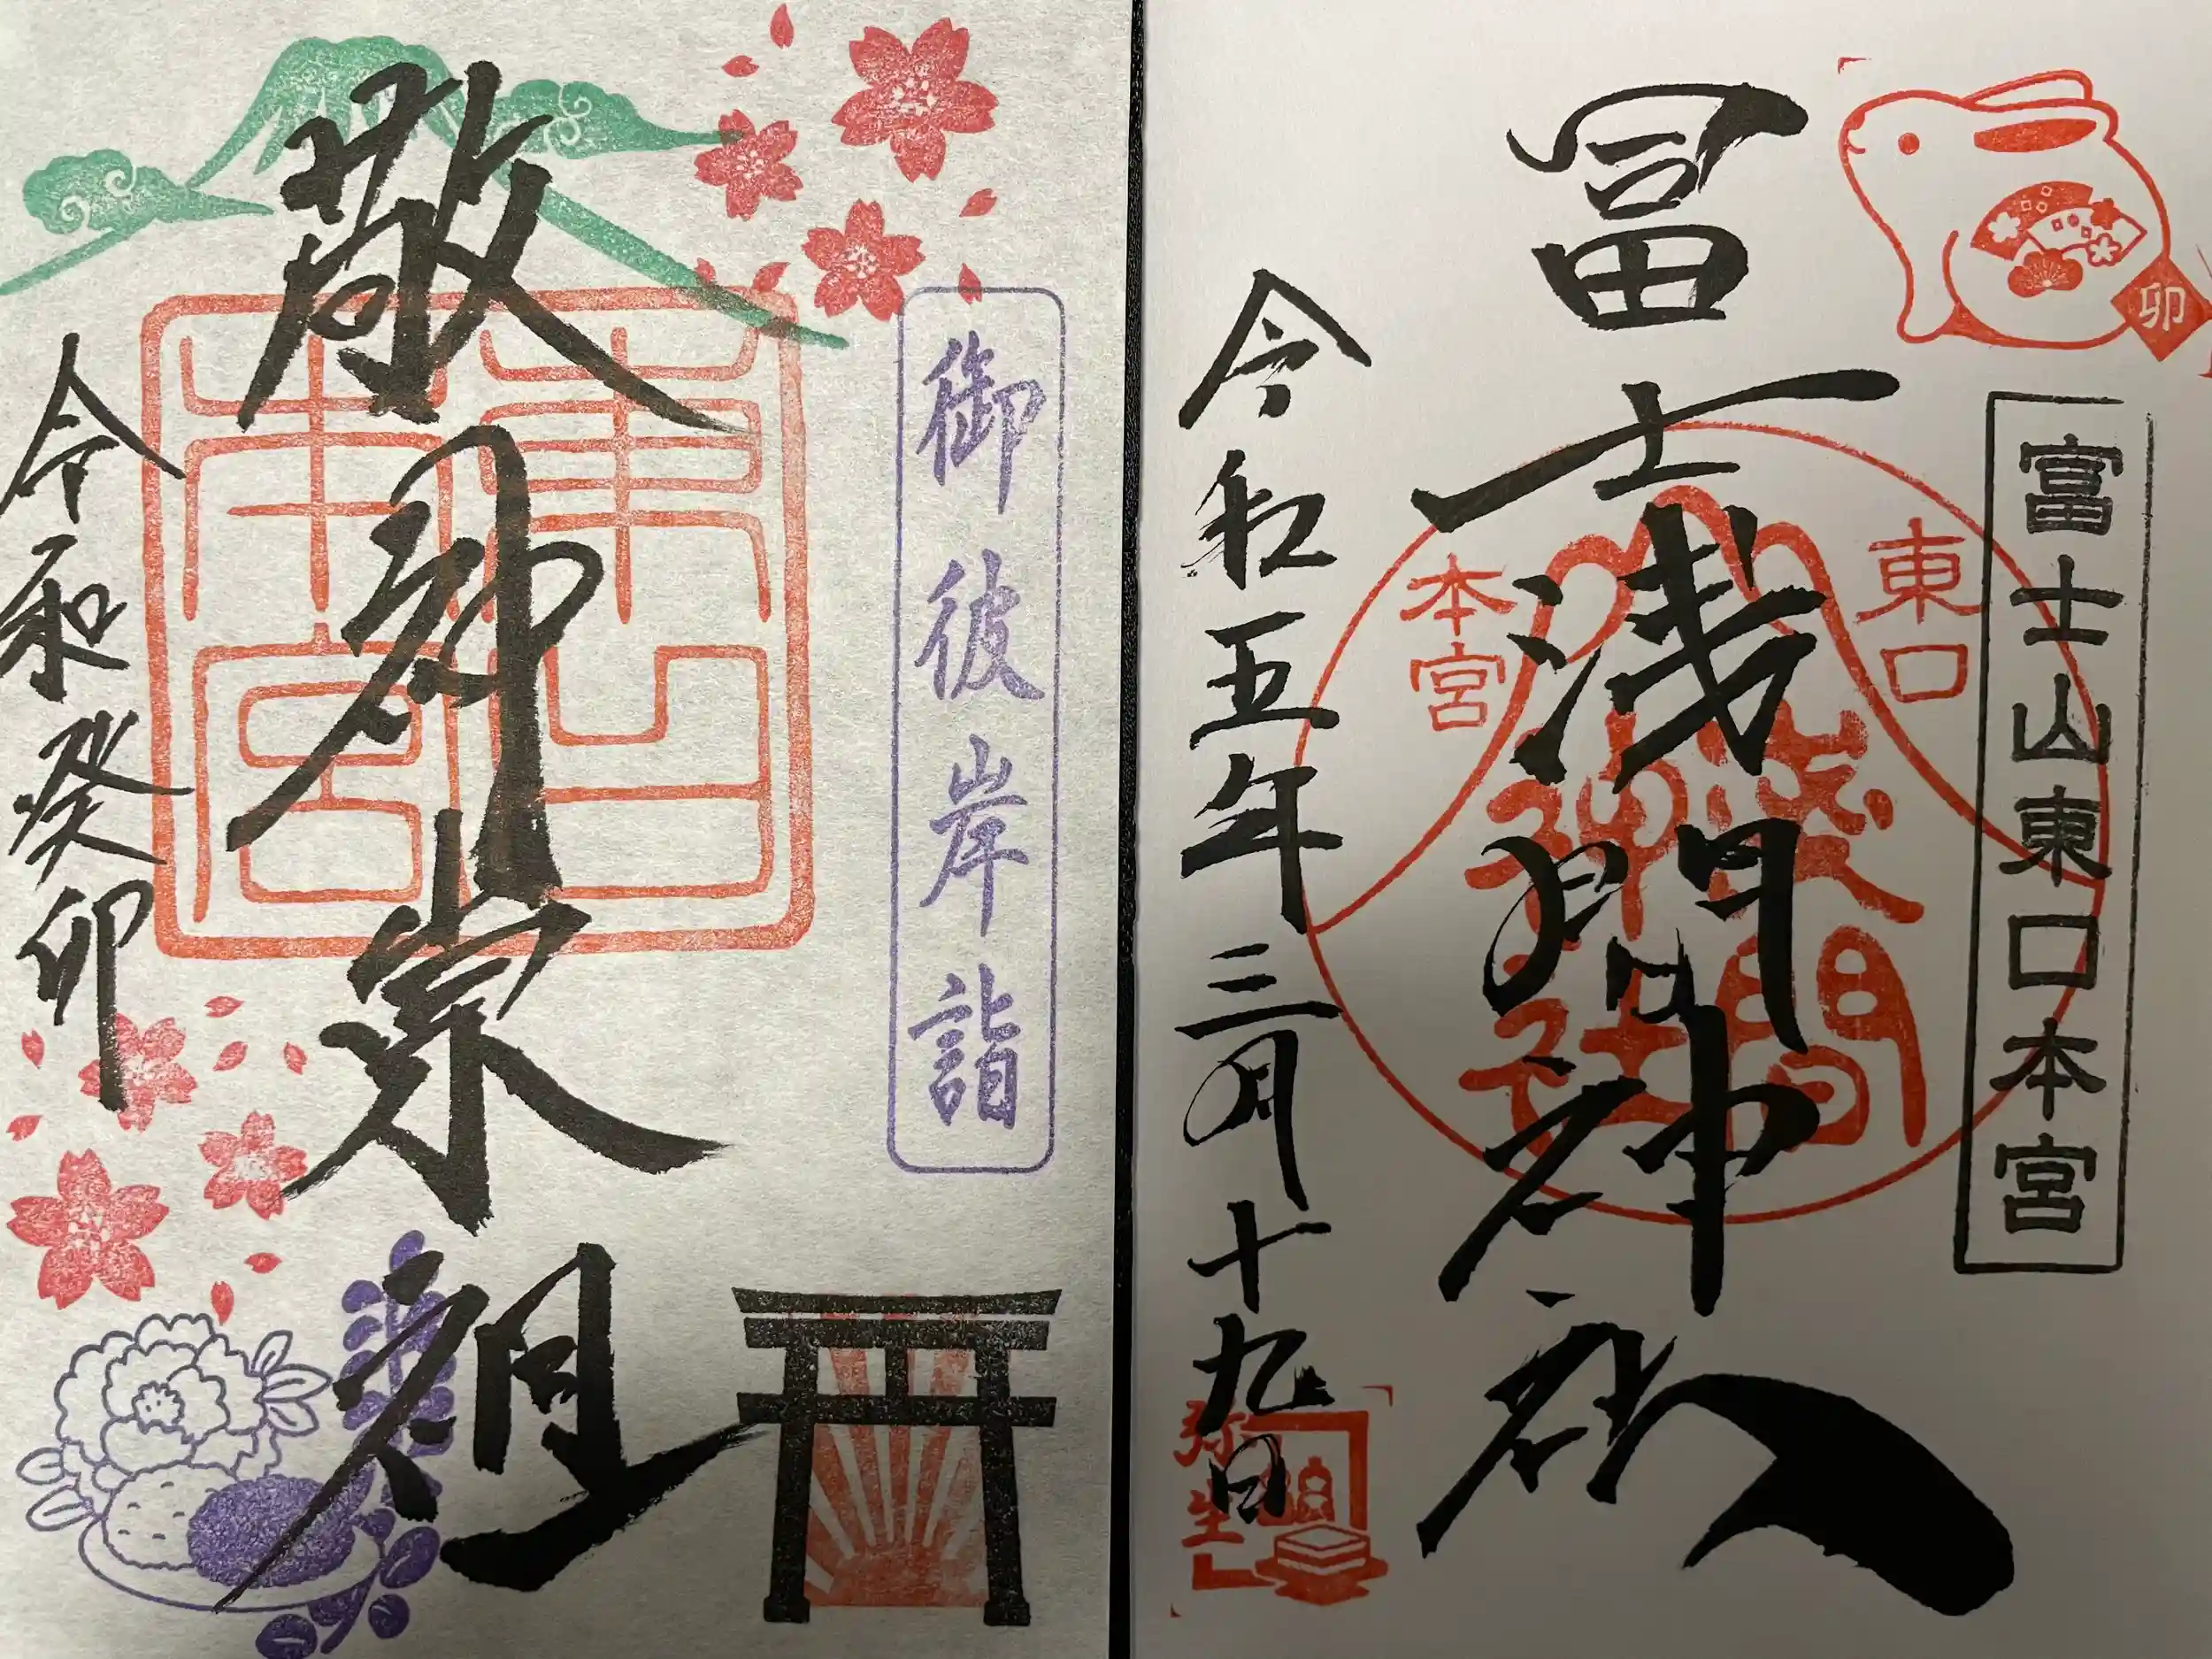 卯
富士山東口本宮
冨士浅間神社
東口
本宮
浅間
神社
令和五年三月十九日
弥生
御彼岸詣
敬神崇祖
東口
本宮
令和癸卯